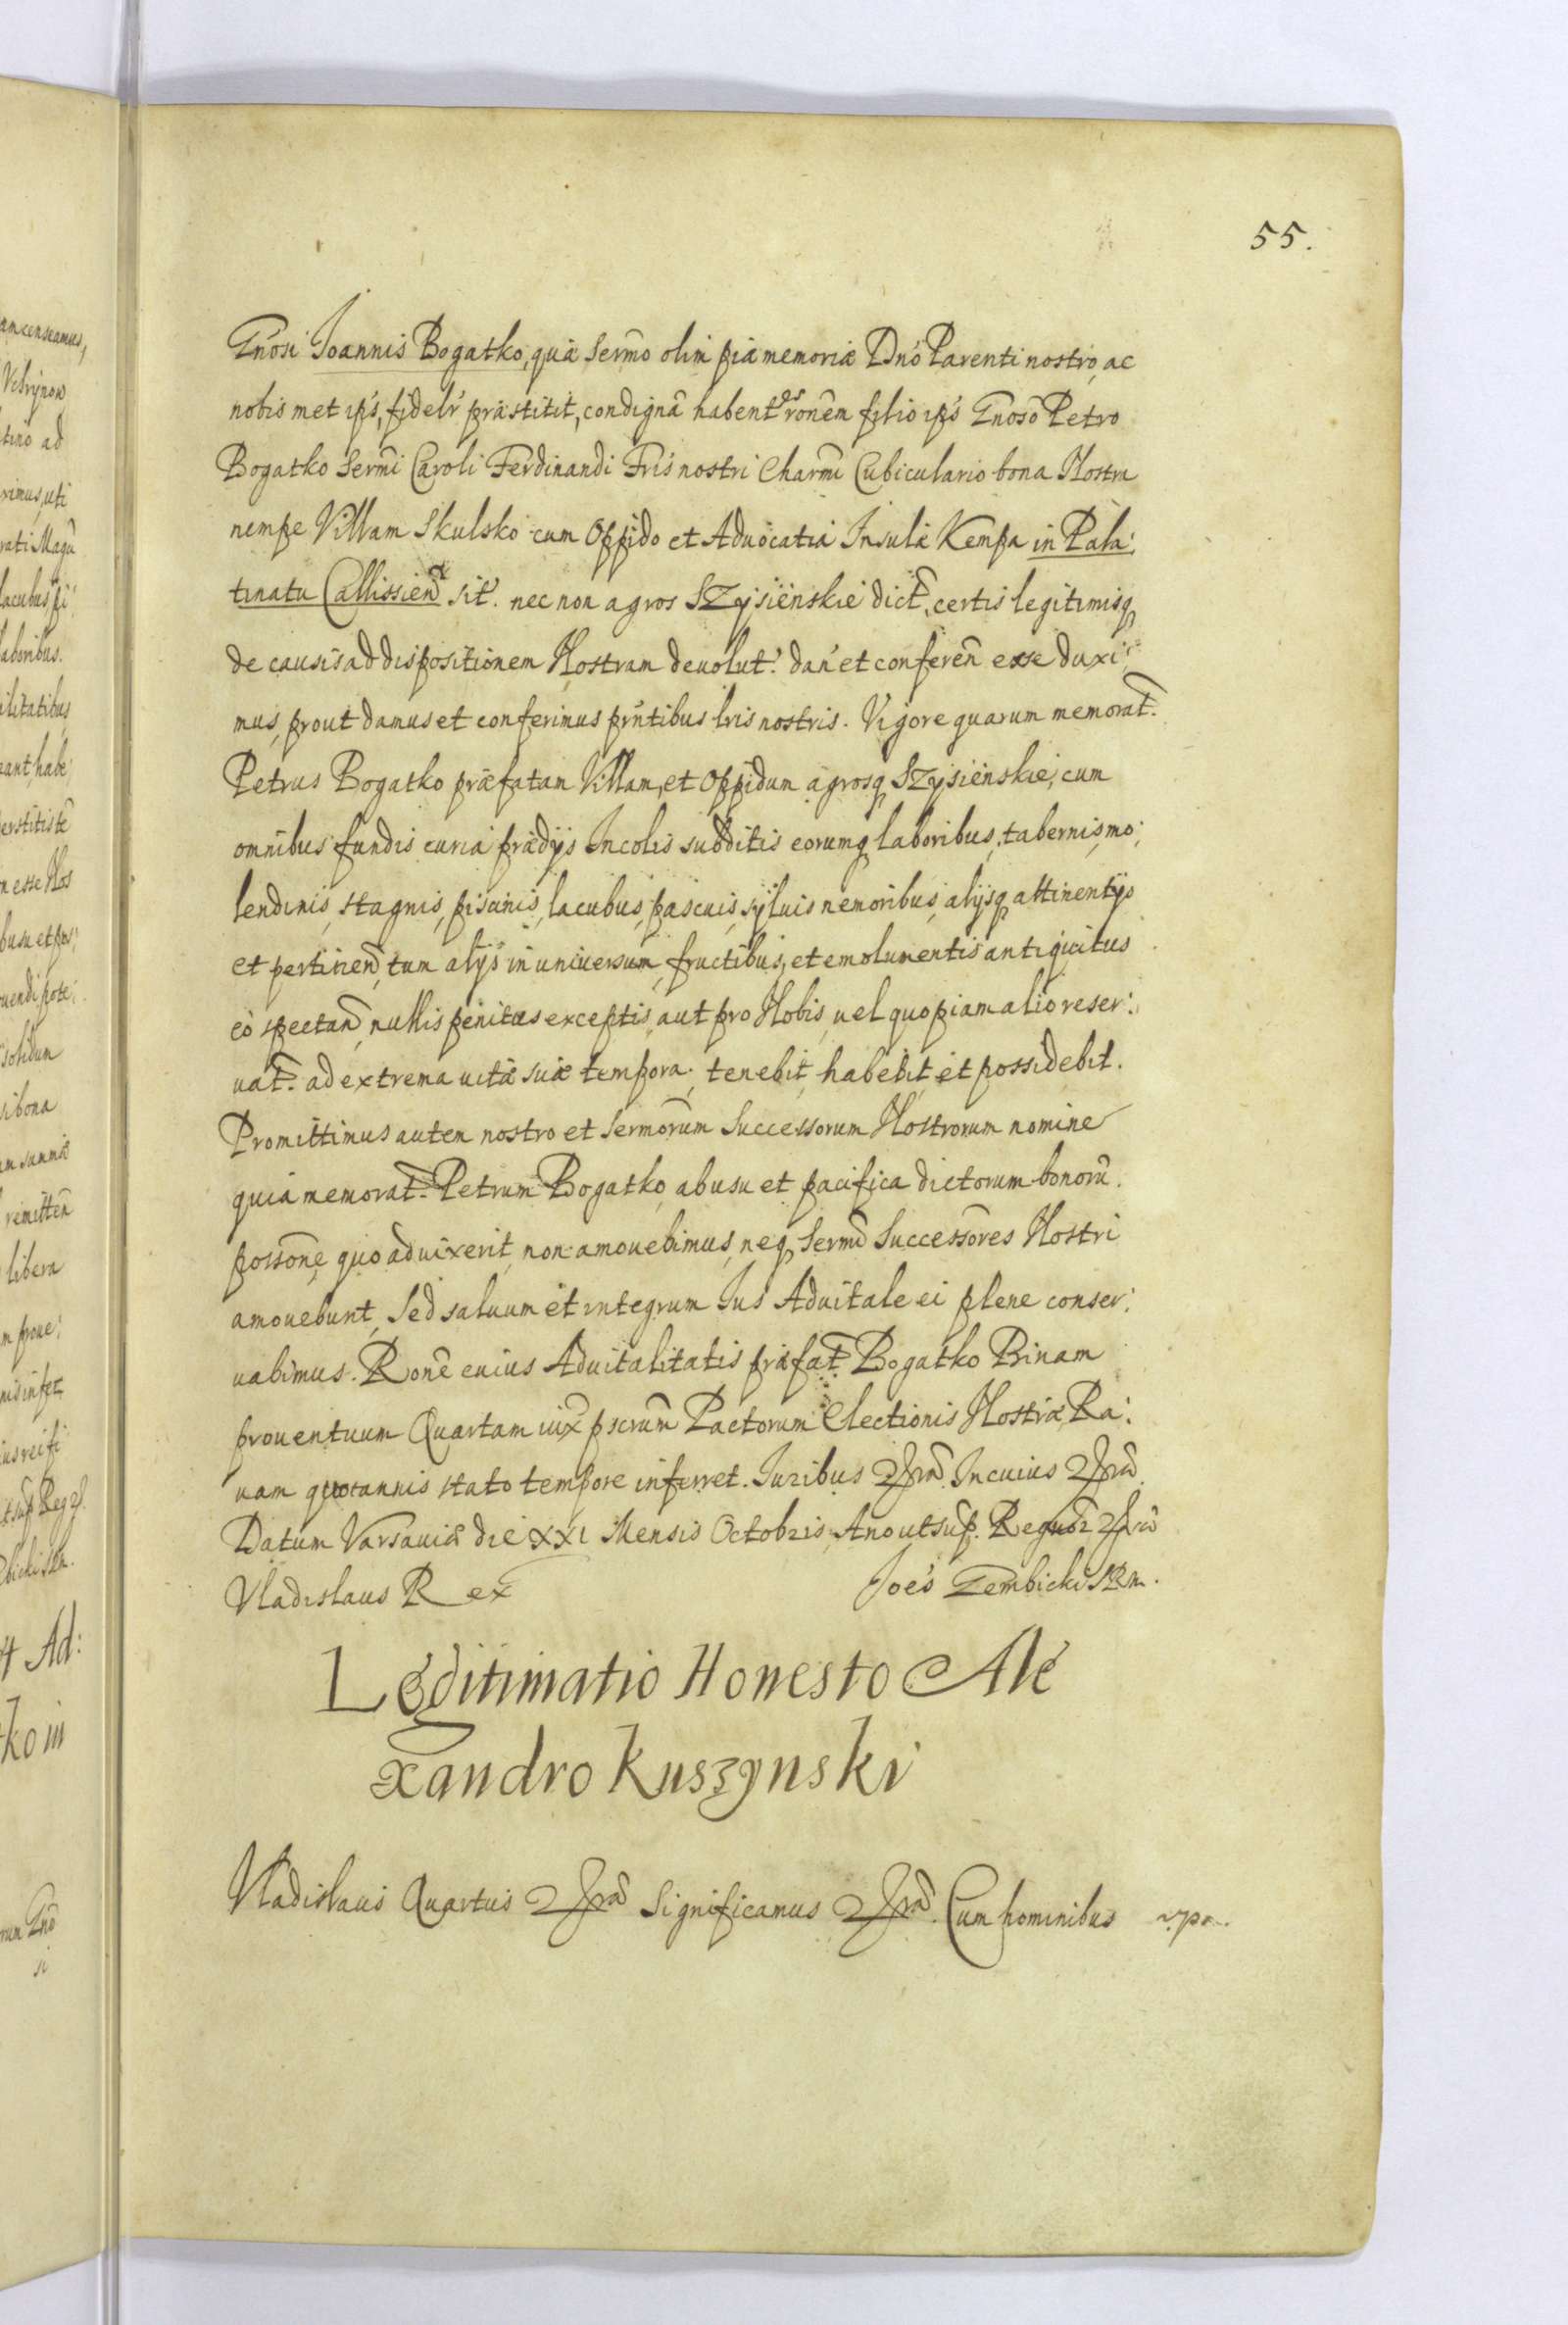 55.
Gnosi Joannis Bogatko, quæ Sermo olim piæ memoriæ Dno Parenti nostro, ac
nobis met ips, fidelr præstitit, condignā habentes ronem filio ips Gnoso Petro
Bogatko Sermi Caroli Ferdinandi Fris nostri Charmi Cubiculario bona Nostra
nempe Villam Skulsko cum Oppido et Aduocatia Insulæ Kempa in Pala:
tinatu Callissien sit. nec non agros SZysienskie dict, certis legitimisq
de causis ad dispositionem Nostram deuolut. dan et conferen esse duxi:
mus, prout damus et conferimus pntibus lris nostris. Vigore quarum memorat.
Petrus Bogatko præfatam Villam, et Oppidum agrosq SZysienskie, cum
omnibus fundis curia prædijs Incolis subditis eorumq laboribus, tabernis, mo:
lendinis, stagnis, piscinis, lacubus, pascuis, syluis nemoribus, alijsq attinentijs
et pertinen, tum alijs in uniuersum, fructibus, et emolumentis antiquitus
eo spectan, nullis penitus exceptis, aut pro Nobis, uel quopiam alio reser:
uat. ad extrema uitæ suæ tempora, tenebit, habebit, et possidebit.
Promittimus autem nostro et Sermorum Successorum Nostrorum nomine
quia memorat. Petrum Bogatko, ab usu et pacifica dictorum bonorū.
possone, quo aduixerit, non amouebimus, neq Sermi Successores Nostri
amouebunt, Sed saluum et integrum Ius Aduitale ei plene conser:
uabimus. Rone cuius Aduitalitatis præfat. Bogatko Binam
prouentuum Quartam iux pscrum Pactorum Electionis Nostræ, Ra:
uam quotannis stato tempore inferret. Iuribus Incuius
Datum Varsauiæ die XXI Mensis Octobris Ano ut sup. Regnor
Vladislaus Rex Joes Gembicki SRm.
Legitimatio Honesto Ale
xandro Kuszynski
Vladislaus Quartus Significamus Cum hominibus